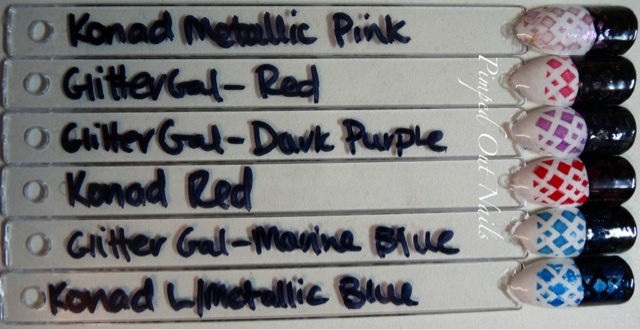 Konad Metallic Pink
GlitterGal- Red
GlitterGal-Dark Purple
Konad Red
Glitter Gal-Marine Blue
Konad L/Metallic Blue
Pimped Out Nails